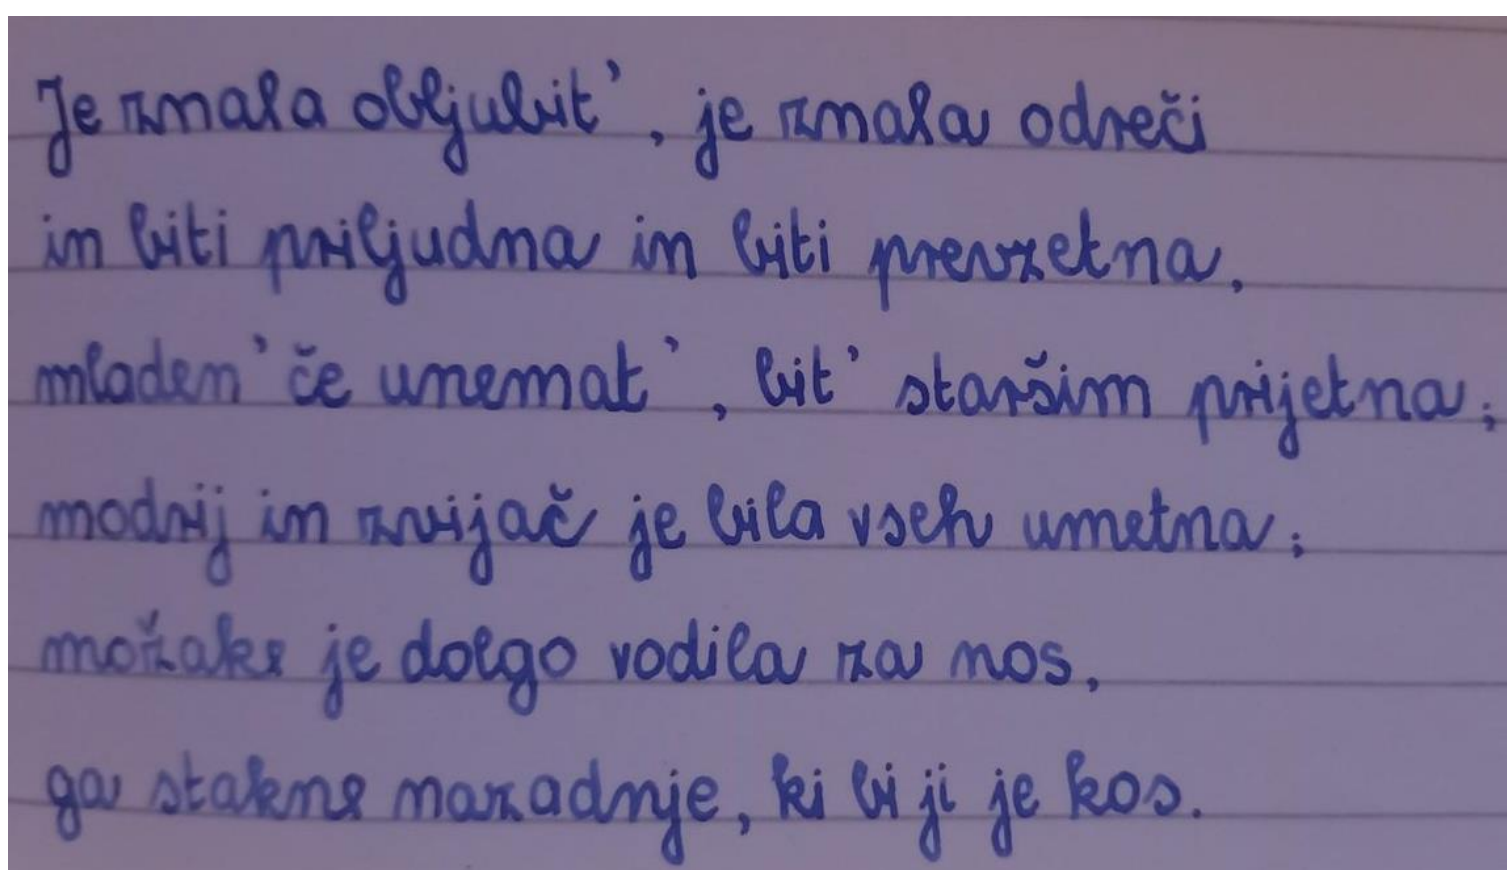 Je znala obljubit', je znala odreči
in biti priljudna in biti prevzetna,
mladen' če unemat', bit' staršim prijetna;
modrij in zvijač je bila vseh umetna;
možake je dolgo vodila za nos,
ga stakne nazadnje, ki bi ji je kos.